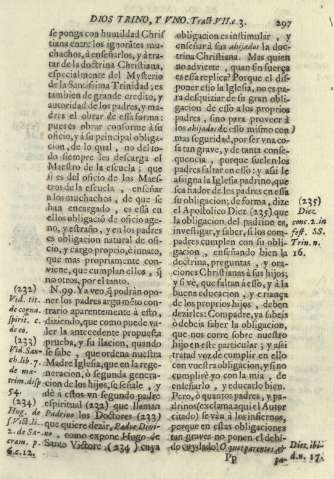 DIOS TRINO, Y VNO. Tract. VII. c. 3. 297
se ponga con humildad Chris
tiana entre los ignorātes mu-
chachos, à enseñarlos, y à tra-
tar de la doctrina Christiana,
especialmente del Mysterio
de la Santissima Trinidad; es
tambien de grande credito, y
autoridad de los padres, y ma-
dres el obrar de essa forma:
pues es obrar conforme à su
oficio, y à su principal obliga-
cion, de lo qual, no del to-
do siempre les descarga el
Maestro de la escuela; que
si es del oficio de los Maes-
tros de la escuela, enseñar
à los muchachos, de que se
han encargado, es essa en
ellos obligació de oficio age-
no, y estraño, y en los padres
es obligacion natural de ofi-
cio, y cargo proprio, è innato,
que mas propriamente con-
viene, que cumplan ellos, q̃
no otros, por el tanto.
N. 99. Ya veo, q̃ podràn opo-
ner los padres argumēto con-
trario aparentemente à esto,
diziendo, que como puede va-
ler la antecedente propuesta
prueba, y su ilacion, quando
se sabe, que ordena nuestra
Madre Iglesia, que en la rege-
neracion, ò segunda genera-
cion de los hijos, se señale, y
dè à estos vn segundo padre
espiritual (232) que llaman
Padrino los Doctores (233)
que quiere dezir, Padre Divi-
no, como expone Hugo de
Santo Victore, (234) cuya
(232)
Vid. tit.
de cogna.
spirit. c.
(233)
Vid. San-
ch. lib. 7.
de ma-
trim. disp
54.
(234)
Hug. de
S. Vict. li.
2. de Sa-
cram. p.
6. c. 12.
obligacion es instimular, y
enseñar à sus ahijados la doc-
trina Christiana. Mas quien
no advierte, quan sin fuerça
es essa replica? Porque el dis-
poner esso la Iglesia, no es pa-
ra desquiziar de su gran obli-
gacion de esso à los proprios
padres, sino para proveer à
los ahijados de esso mismo con
mas seguridad, por ser vna co-
sa tan grave, y de tanta conse-
quencia, porque suelen los
padres faltar en esso: y assi le
asigna la Iglesia padrino, que
sea tanedor de los padres en essa
su obligacion; de forma, dize
el Apostolico Diez (235) que
la obligacion del padrino es,
investigar, y saber, si los com-
padres cumplen con su obli-
gacion, enseñando bien la
doctrina, preguntas, y ora-
ciones Christianas à sus hijos;
y si vè, que faltan à esso, y à la
buena educacion, y criança
de los proprios hijos, deben
dezirles: Compadre, ya sabeis
ò debeis saber la obligacion,
que nos corre sobre nuestro
hijo en este particular; y assi
tratad voz de cumplir en ello
con vuestra obligacion, y si no
cumplirè yo con la mia, de
enseñarlo, y educarlo bien.
Pero, ò quantos padres, y pa-
drinos (exclama aqui el Autor
citado) se vàn à los infiernos,
porque en estas obligaciones
tan graves no ponen el debi-
do cuydado! O quot parentes, &
Pp pa-
(235)
Diez
conc. 2. in
fest. SS.
Trin. n.
16.
Diez. ibi-
d. n. 17.